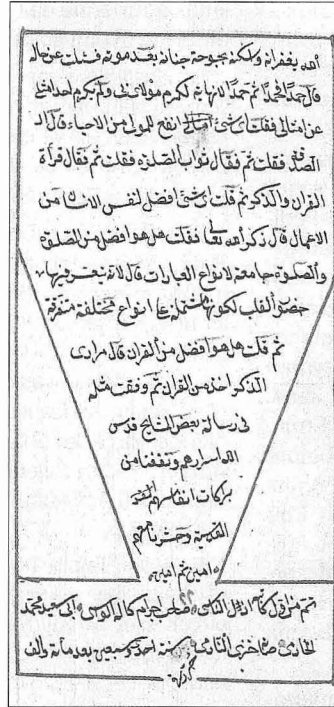 الله بغفرانه وسكنه بحبوحة جنانه بعد موته فسئلت عن حاله
قال حمدا فحمدا ثم حمدا لانهاية لكرم مولائى ولم يكرم احد اعلى
عن امثالى فقلت اى شئ انفع للموتى من الاحياء قال
الصدقة فقلت ثم فقال ثواب الصلوة فقلت ثم فقال قرأة
القران والذكر ثم قلت اى شئ افضل لنفس الانسان من
الاعمال قال ذكر الله تعالى فقلت هل هو افضل من الصلوة
والصلوة جامعة لانواع العبارات قال لانه يعتبر فيها
حضور القلب لكونها مشتملة على انواع مختلفة متفرقة
ثم قلت هل هو افضل من القران قال مرادى
الذكر احذ من القران ثم وفقت مثله
فى رسالة بعض المشايخ قدس
الله اسرارهم ونفعنا من
بركات انفاسهم
القدسية وحشرنا معهم
امين ثم امين
تمم من اقل الناس ابى سعيد محمد
الخادمى
سنه احد وسبعين بعد مأة والف